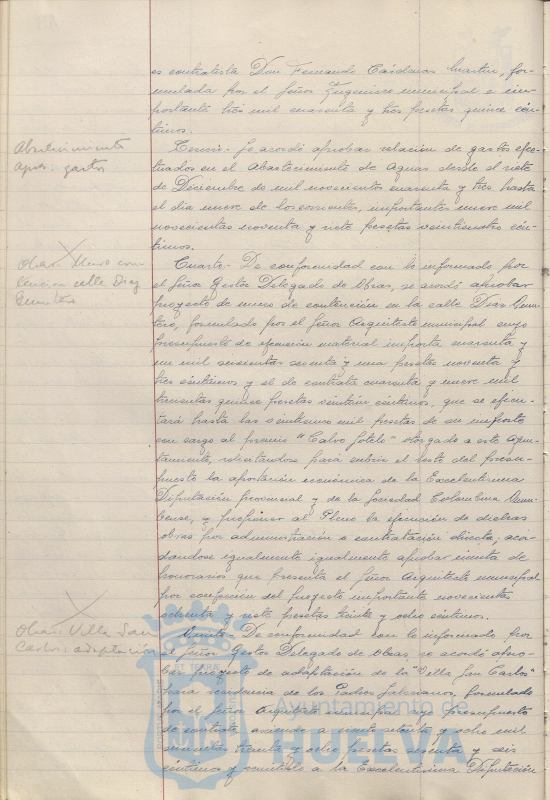 es contratista Don Fernando Cárdenas Martin, for-
mulada por el Señor Ingeniero municipal e im-
portante tres mil cuarenta y tres pesetas quince cén-
timos.
Abastecimiento
Aguas: gastos
Tercero.- Se acordó aprobar relación de gastos efec-
tuados en el Abastecimiento de Aguas desde el siete
de Diciembre de mil novecientos cuarenta y tres hasta
el dia nueve de los corrientes, importantes nueve mil
novecientas noventa y siete pesetas veinticuatro cén-
timos.
Obras: Muro con
tencion calle Diaz
Quintero
Cuarto.- De conformidad con lo informado por
el Señor Gestor Delegado de Obras, se acordó aprobar
proyecto de muro de contención en la calle Diaz Quin-
tero, formulado por el Señor Arquitecto municipal cuyo
presupuesto de ejecución material importa cuarenta y
un mil seiscientas sesenta y una pesetas noventa y
tres céntimos y el de contrata cuarenta y nueve mil
trescientas quince pesetas céntimos, que se ejecu-
tará hasta las veinticinco mil pesetas de su importe
con cargo al premio "Calvo Sotelo" otorgado a este Ayun-
tamiento, solicitandose para cubrir el resto del presu-
puesto la aportación económica de la Excelentisima
Diputación provincial y de la Sociedad Colombina Onu-
bense, y proponer al Pleno la ejecución de dichas
obras por administración o contratación directa; acor-
dandose igualmente igualmente aprobar minuta de
honorarios que presenta el Señor Arquitecto municipal
por confección del proyecto importante novecientas
ochenta y siete pesetas treinta y ocho céntimos.
Obras: Villa San
Carlos: adaptación
Quinto.- De conformidad con lo informado por
el Señor Gestor Delegado de Obras se acordó apro-
bar proyecto de adaptación de la "Villa San Carlos"
para residencia de los Padres Salesianos, formulado
por el Señor Arquitecto municipal, cuyo presupuesto
de contrata asciende a ciento setenta y ocho mil
treinta y ocho pesetas sesenta y seis
céntimos y remitirlo a la Excelentisima Diputación
Ayuntamiento de
HUELVA